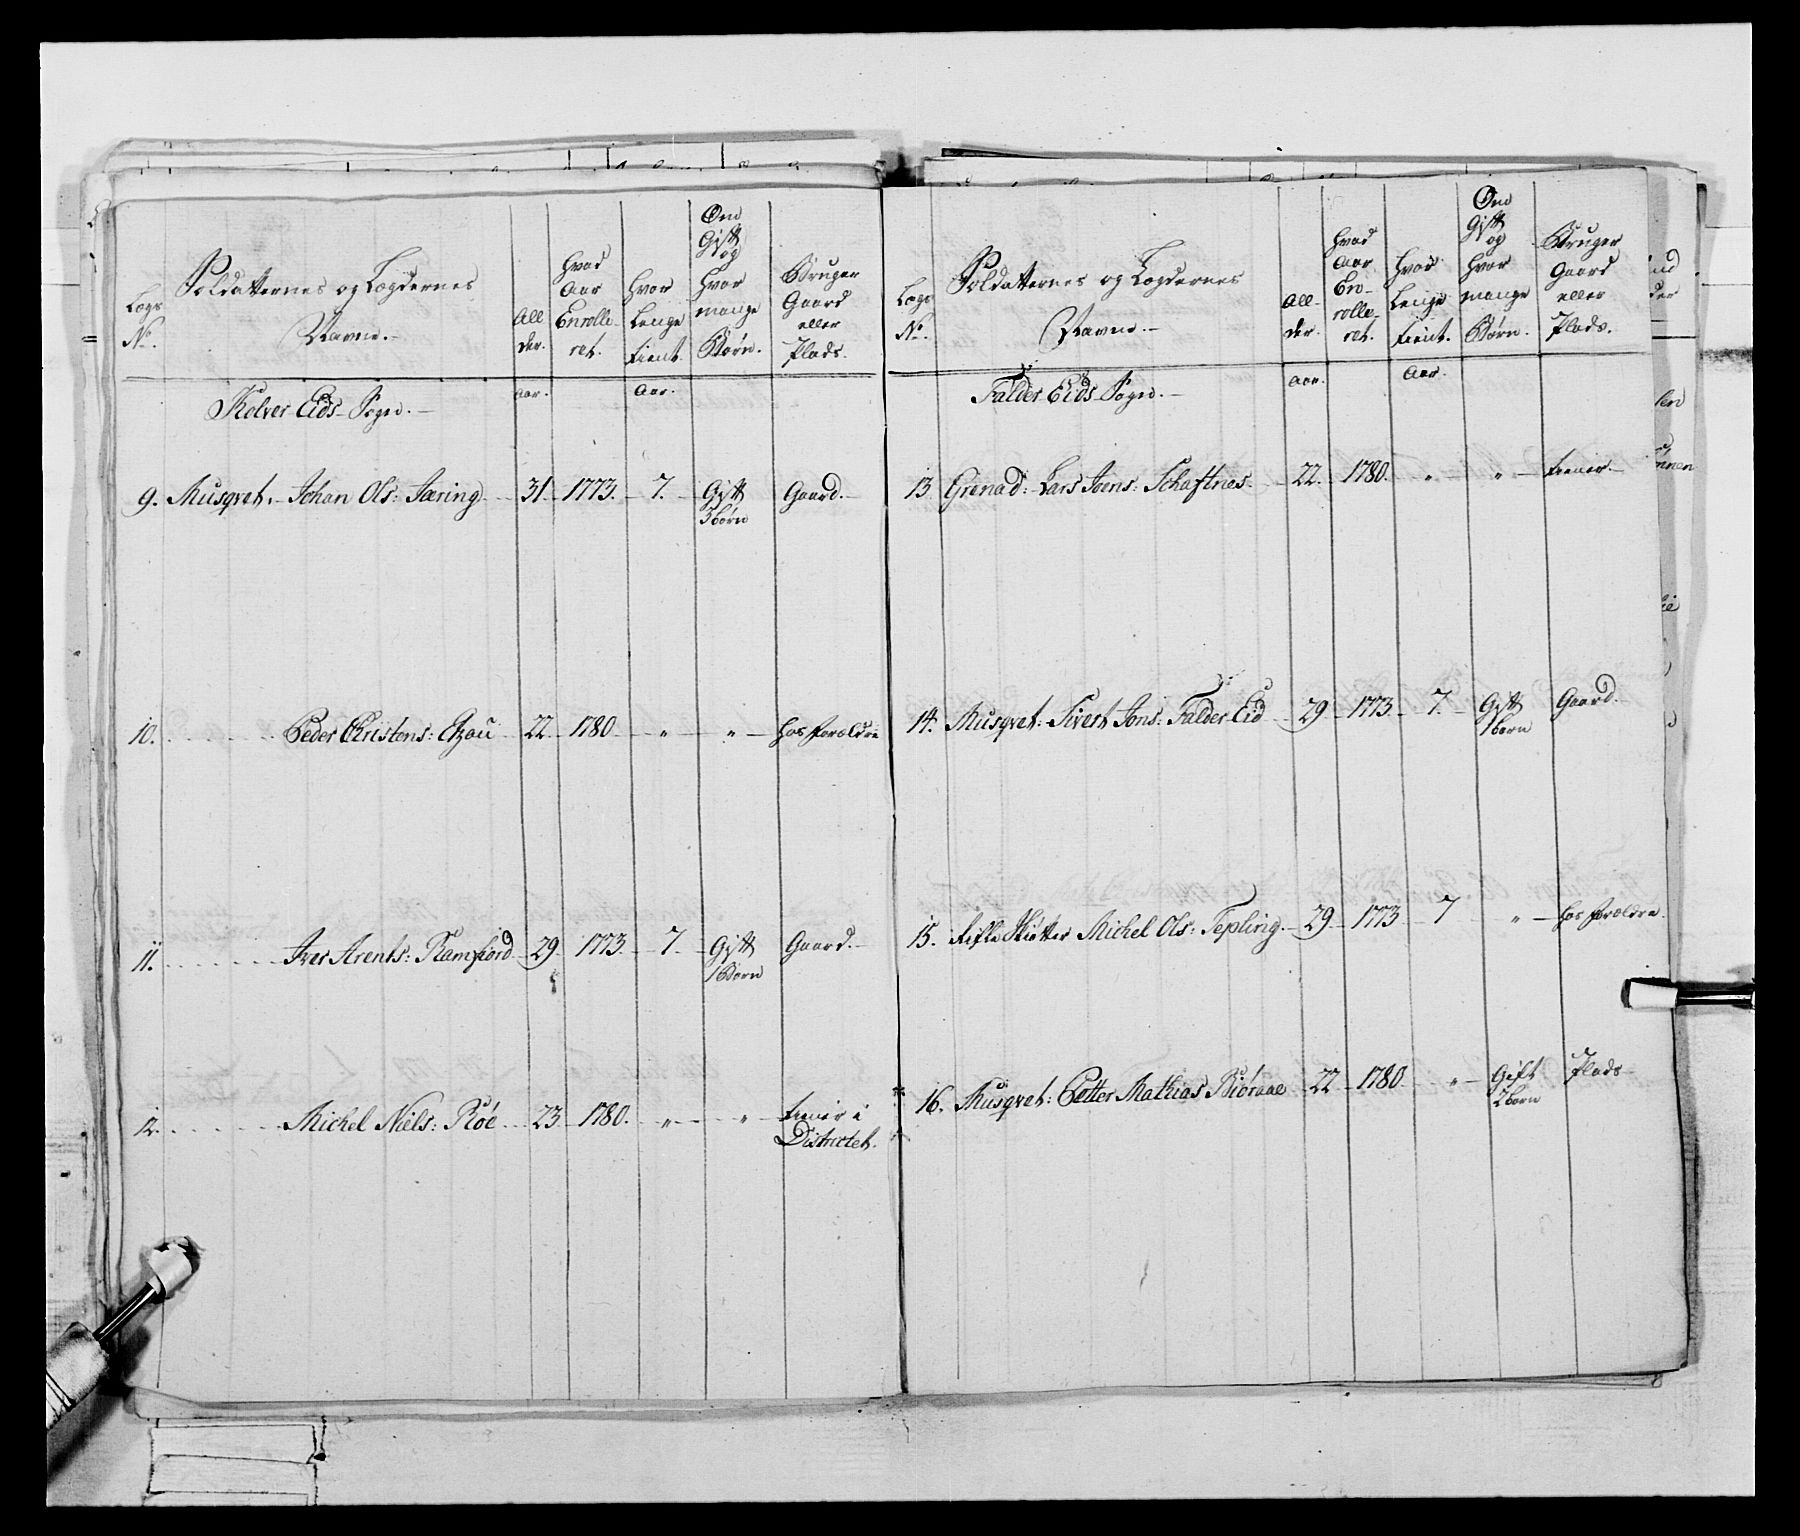 Lægs No.
Soldatternes og Lægdernes Navne.
Allder.
Hvad Aar Enrolleret.
Hvor Lenge tient.
Om Gift og Hvor mange Børn.
Bruger Gaard eller Plads.
Kolver Eids Sogn.
Aar.
Aar.
9. Musqvet. Johan Ols: Særing 31. 1773. 7. Gift Gaard.
3 børn
10. Peder Christens: 22. 1780. " " hos forældre
11. Iver Arents: Ramfiord 29. 1773. 7. Gift Gaard.
1 Børn
12. Michel Niels: Röe 23. 1780. " " tiener i
Districtet.
Lægs No.
Soldatternes og Lægdernes Navne.
Allder.
Hvad Aar Enrolleret.
Hvor Lenge tient.
Om Gift og Hvor mange Børn.
Bruger Gaard eller Plads.
Falder Eids Sogn.
Aar.
Aar.
13 Grenad: Lars Joens: Schaftnes. 22. 1780. " " tiener.
14. Musqvet: Sivert Jons: Falder Eid 29 1773 7. Gift Gaard.
1 børn
15. Rifle Skiøtter Michel Ols: Tepling. 29 1773 7 " hos forældre.
16. Musqvet: Petter Mathias Biöraae 22 1780. " Gift Plads
2 børn